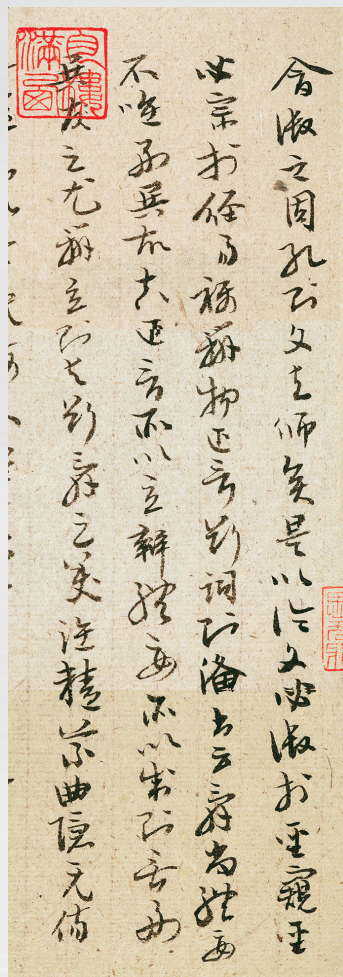 會徵之周孔則文有師矣是以論文必徵於聖窺聖
必宗於經易稱辨物正言斷詞則備書云辭尚體要
不唯好異故知正言所以立辯體要所以成則無好
異之尤辯立則有斷辭之美雖精義曲隱无傷